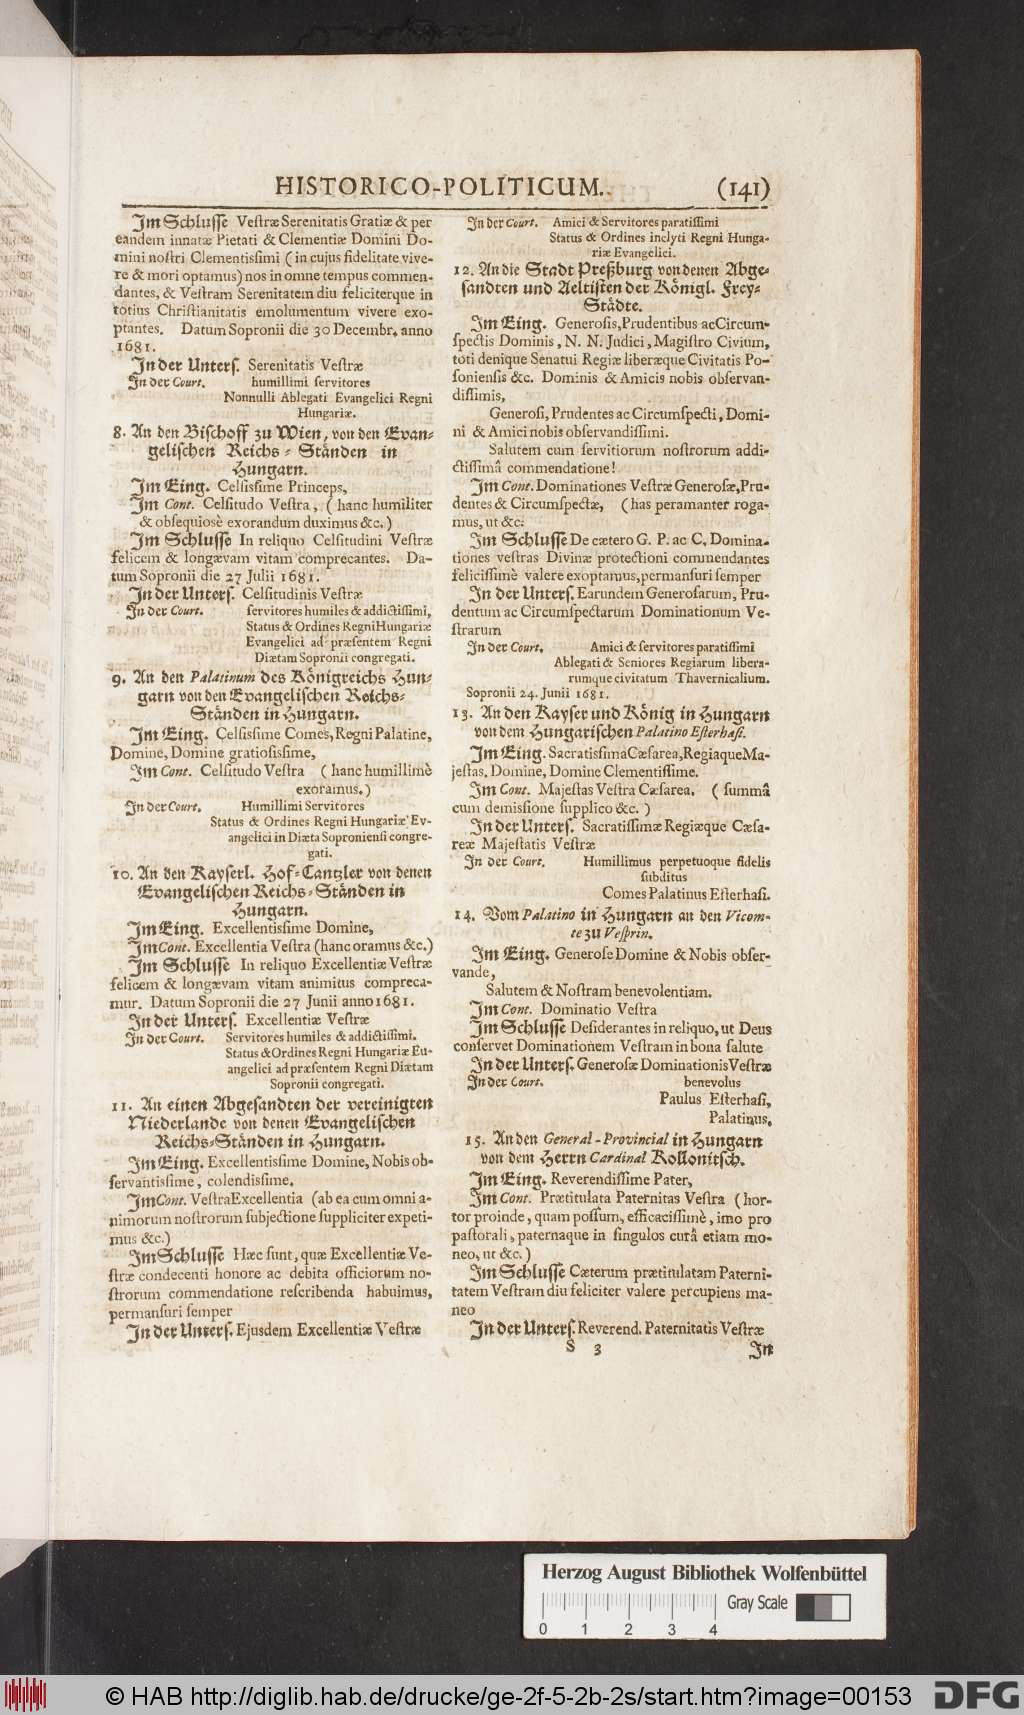 HISTORICO-POLITICUM. (141)
Im Schlusse Vestræ Serenitatis Gratiæ & per
eandem innatæ Pietati & Clementiæ Domini Do-
mini nostri Clementissimi (in cujus fidelitate vive-
re & mori optamus) nos in omne tempus commen-
dantes, & Vestram Serenitatem diu feliciterque in
totius Christianitatis emolumentum vivere exo-
ptantes. Datum Sopronii die 30 Decembr. anno
1681.
In der Unters. Serenitatis Vestræ
In der Court. humillimi servitores
Nonnulli Ablegati Evangelici Regni
Hungariæ.
8. An den Bischoff zu Wien, von den Evan-
gelischen Reichs-Ständen in
Hungarn.
Im Eing. Celsissime Princeps,
Im Cont. Celsitudo Vestra, (hanc humiliter
& obsequiosè exorandum duximus &c.)
Im Schlusse In reliquo Celsitudini Vestræ
felicem & longævam vitam comprecantes. Da-
tum Sopronii die 27 Julii 1681.
In der Unters. Celsitudinis Vestræ
In der Court. servitores humiles & addictissimi,
Status & Ordines Regni Hungariæ
Evangelici ad præsentem Regni
Diætam Sopronii congregati.
9. An den Palatinum des Königreichs Hun-
garn von den Evangelischen Reichs-
Ständen in Hungarn.
Im Eing. Celsissime Comes, Regni Palatine,
Domine, Domine gratiosissime,
Im Cont. Celsitudo Vestra (hanc humillimè
exoramus.)
In der Court. Humillimi Servitores
Status & Ordines Regni Hungariæ Ev-
angelici in Diæta Soproniensi congre-
gati.
10. An den Kayserl. Hof-Cantzler von denen
Evangelischen Reichs-Ständen in
Hungarn.
Im Eing. Excellentissime Domine,
Im Cont. Excellentia Vestra (hanc oramus &c.)
Im Schlusse In reliquo Excellentiæ Vestræ
felicem & longævam vitam animitus compreca-
mur. Datum Sopronii die 27 Junii anno 1681.
In der Unters. Excellentiæ Vestræ
In der Court. Servitores humiles & addictissimi.
Status & Ordines Regni Hungariæ Eu-
angelici ad præsentem Regni Diætam
Sopronii congregati.
11. An einen Abgesandten der vereinigten
Niederlande von denen Evangelischen
Reichs-Ständen in Hungarn.
Im Eing. Excellentissime Domine, Nobis ob-
servantissime, colendissime.
Im Cont. Vestra Excellentia (ab ea cum omni a-
nimorum nostrorum subjectione suppliciter expeti-
mus &c.)
Im Schlusse Hæc sunt, quæ Excellentiæ Ve-
stræ condecenti honore ac debita officiorum no-
strorum commendatione rescribenda habuimus,
permansuri semper
In der Unters. Ejusdem Excellentiæ Vestræ
In der Court. Amici & Servitores paratissimi
Status & Ordines inclyti Regni Hunga-
riæ Evangelici.
12. An die Stadt Preßburg von denen Abge-
sandten und Aeltisten der Königl. Frey-
Städte.
Im Eing. Generosis, Prudentibus ac Circum-
spectis Dominis, N. N. Judici, Magistro Civium,
toti denique Senatui Regiæ liberæque Civitatis Po-
soniensis &c. Dominis & Amicis nobis observan-
dissimis,
Generosi, Prudentes ac Circumspecti, Domi-
ni & Amici nobis observandissimi.
Salutem cum servitiorum nostrorum addi-
ctissimâ commendatione!
Im Cont. Dominationes Vestræ Generosæ, Pru-
dentes & Circumspectæ, (has peramanter roga-
mus, ut &c.
Im Schlusse De cætero G. P. ac C. Domina-
tiones vestras Divinæ protectioni commendantes
felicissimè valere exoptamus, permansuri semper
In der Unters. Earundem Generosarum, Pru-
dentum ac Circumspectarum Dominationum Ve-
strarum
In der Court. Amici & servitores paratissimi
Ablegati & Seniores Regiarum libera-
rumque civitatum Thavernicalium.
Sopronii 24. Junii 1681.
13. An den Kayser und König in Hungarn
von dem Hungarischen Palatino Esterhasi.
Im Eing. Sacratissima Cæsarea, Regiaque Ma-
jestas, Domine, Domine Clementissime.
Im Cont. Majestas Vestra Cæsarea. (summâ
cum demissione supplico &c.)
In der Unters. Sacratissimæ Regiæque Cæsa-
reæ Majestatis Vestræ
In der Court. Humillimus perpetuoque fidelis
subditus
Comes Palatinus Esterhasi.
14. Vom Palatino in Hungarn an den Vicom-
te zu Vesprin.
Im Eing. Generose Domine & Nobis obser-
vande,
Salutem & Nostram benevolentiam.
Im Cont. Dominatio Vestra
Im Schlusse Desiderantes in reliquo, ut Deus
conservet Dominationem Vestram in bona salute
In der Unters. Generosæ Dominationis Vestræ
In der Court. benevolus
Paulus Esterhasi,
Palatinus.
15. An den General-Provincial in Hungarn
von dem Herrn Cardinal Kollonitsch.
Im Eing. Reverendissime Pater,
Im Cont. Prætitulata Paternitas Vestra (hor-
tor proinde, quam possum, efficacissimè, imo pro
pastorali, paternaque in singulos curâ etiam mo-
neo, ut &c.)
Im Schlusse Cæterum prætitulatam Paterni-
tatem Vestram diu feliciter valere percupiens ma-
neo
In der Unters. Reverend. Paternitatis Vestræ
S 3 In
Herzog August Bibliothek Wolfenbüttel
Gray Scale
0 1 2 3 4
© HAB http://diglib.hab.de/drucke/ge-2f-5-2b-2s/start.htm?image=00153 DFG